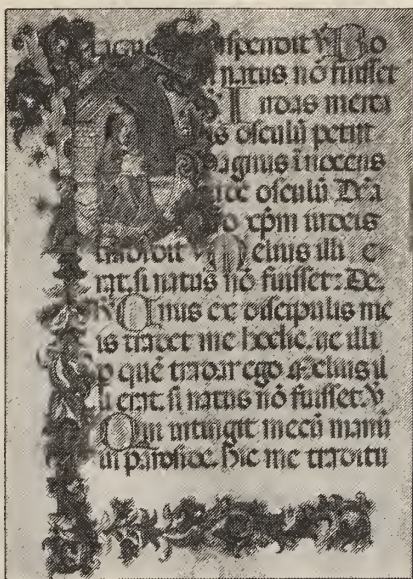 laqueo suspendit ℣ Bo
natus nō fuisset
Iudas merca
us osculū petiit
agnus īnocens
osculū Dēa
o xp̄m iudeis
tradidit ℣ Melius illi e
rat, si natus nō fuisset: De.
℟ Unus ex discipulis me
is tradet me hodie. ve illi
p quē tradar ego melius il
li erat. si natus nō fuisset. ℣
Qui intingit mecū manū
in paroside. hic me traditu